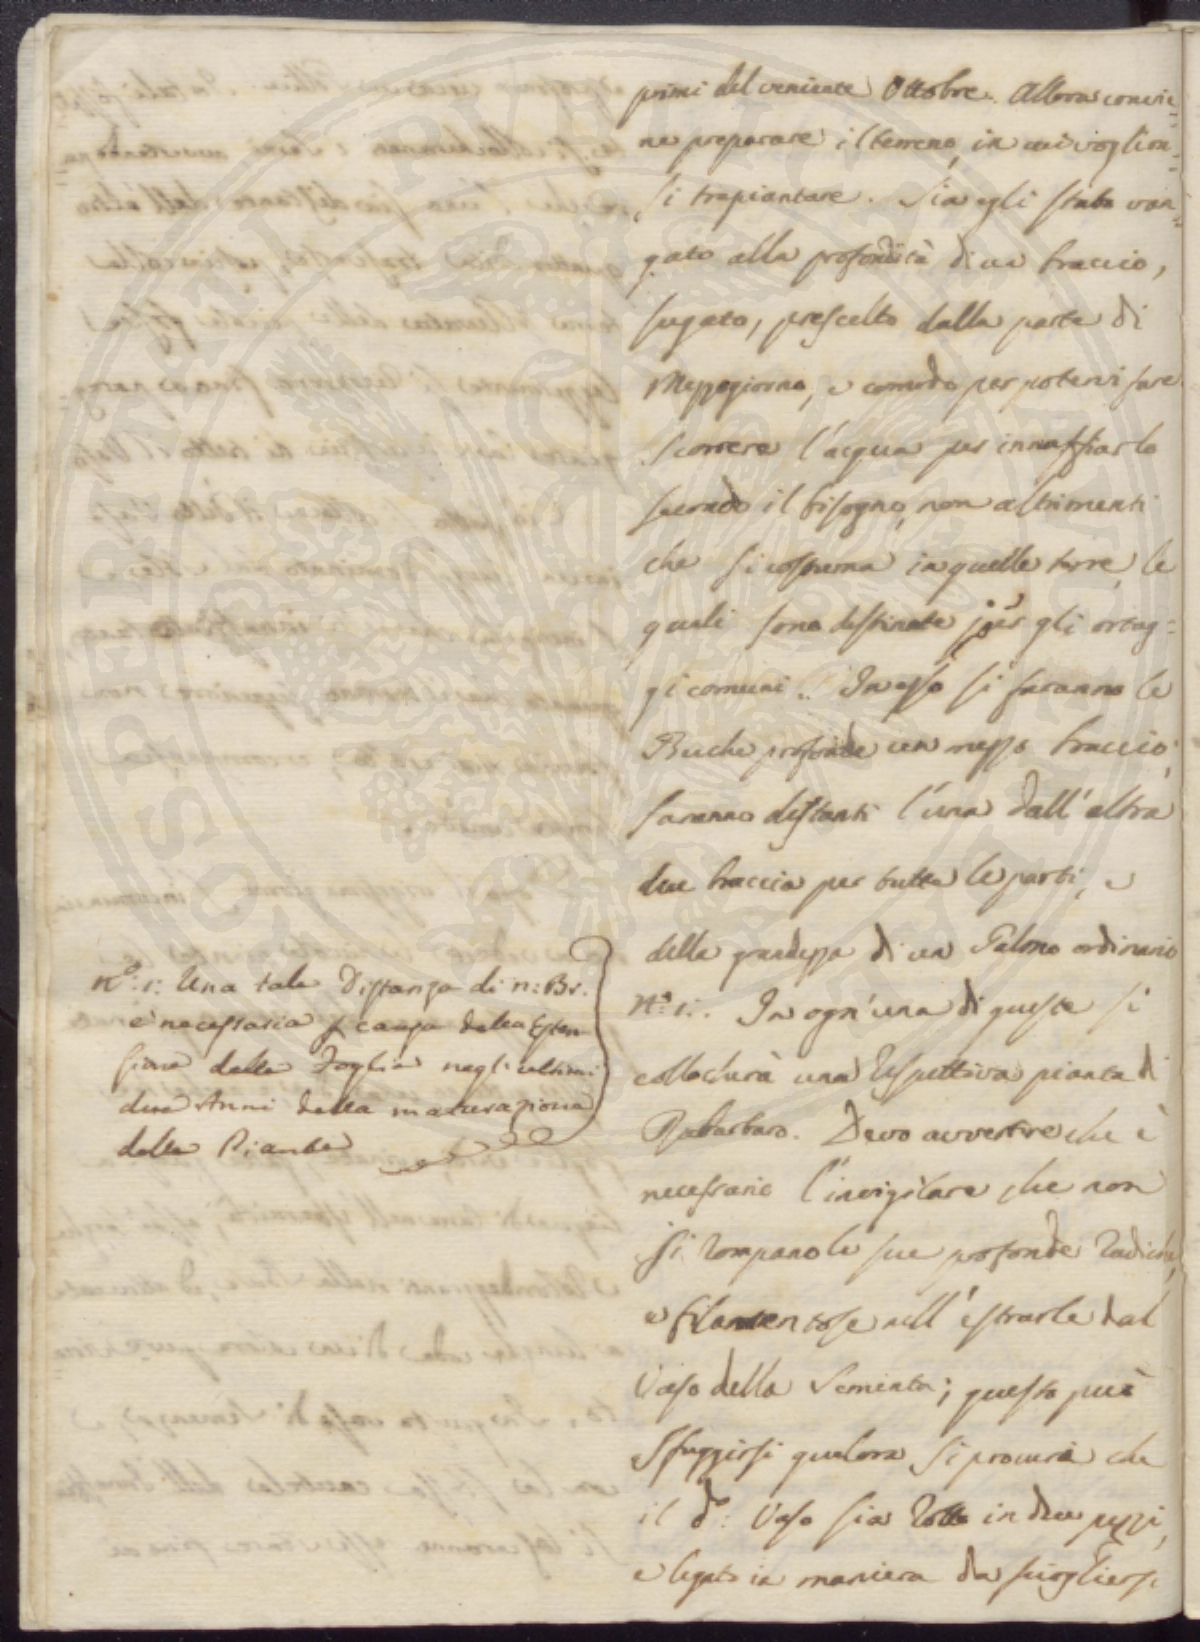 primi del veniente Ottobre. Allora convie-
ne preparare il terreno, in cui voglion-
si trapiantare. Sia egli stato van-
gato alla profondità di un braccio,
sugato, prescelto dalla parte di
Mezzogiorno, e comodo per potervi fare
scorrere l'acqua per innaffiarlo
secondo il bisogno, non altrimenti
che si costuma in quelle terre, le
quali sono destinate per gli ortag=
gi comuni. In esso si faranno le
Buche profonde un mezzo braccio;
saranno distanti l'una dall'altra
due braccia per tutte le parti, e
della grandezza di un Palmo ordinario
N.º 1:. In ogn'una di queste si
collocherà una respettiva pianta di
Rabarbaro. Devo avvertire che è
necessario l'invigilare che non
si rompano le sue profonde radiche,
e filamentose nell'estrarle dal
Vaso della Sementa; questo può
sfuggirsi qualora si procuri che
il d.º: Vaso sia rotto in due pezzi,
e legato in maniera da sciogliersi
N.º: 1: Una tale Distanza di n: Br:
è necessaria p causa della Esten
sione delle Foglie negl'ultimi
due Anni della maturazione
delle Piante